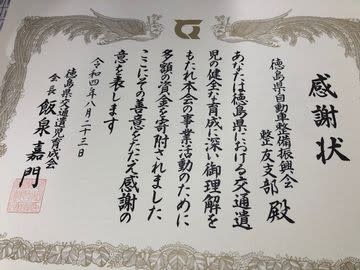 感謝状
徳島県自動車整備振興会
整友支部 殿
あなたは徳島県における交通遺
児の健全な育成に深い御理解を
もたれ本会の事業活動のために
多額の資金を寄附されました
ここにその善意をたたえ感謝の
意を表します
令和四年八月二十三日
徳島県交通遺児育成会
会長 飯泉嘉門